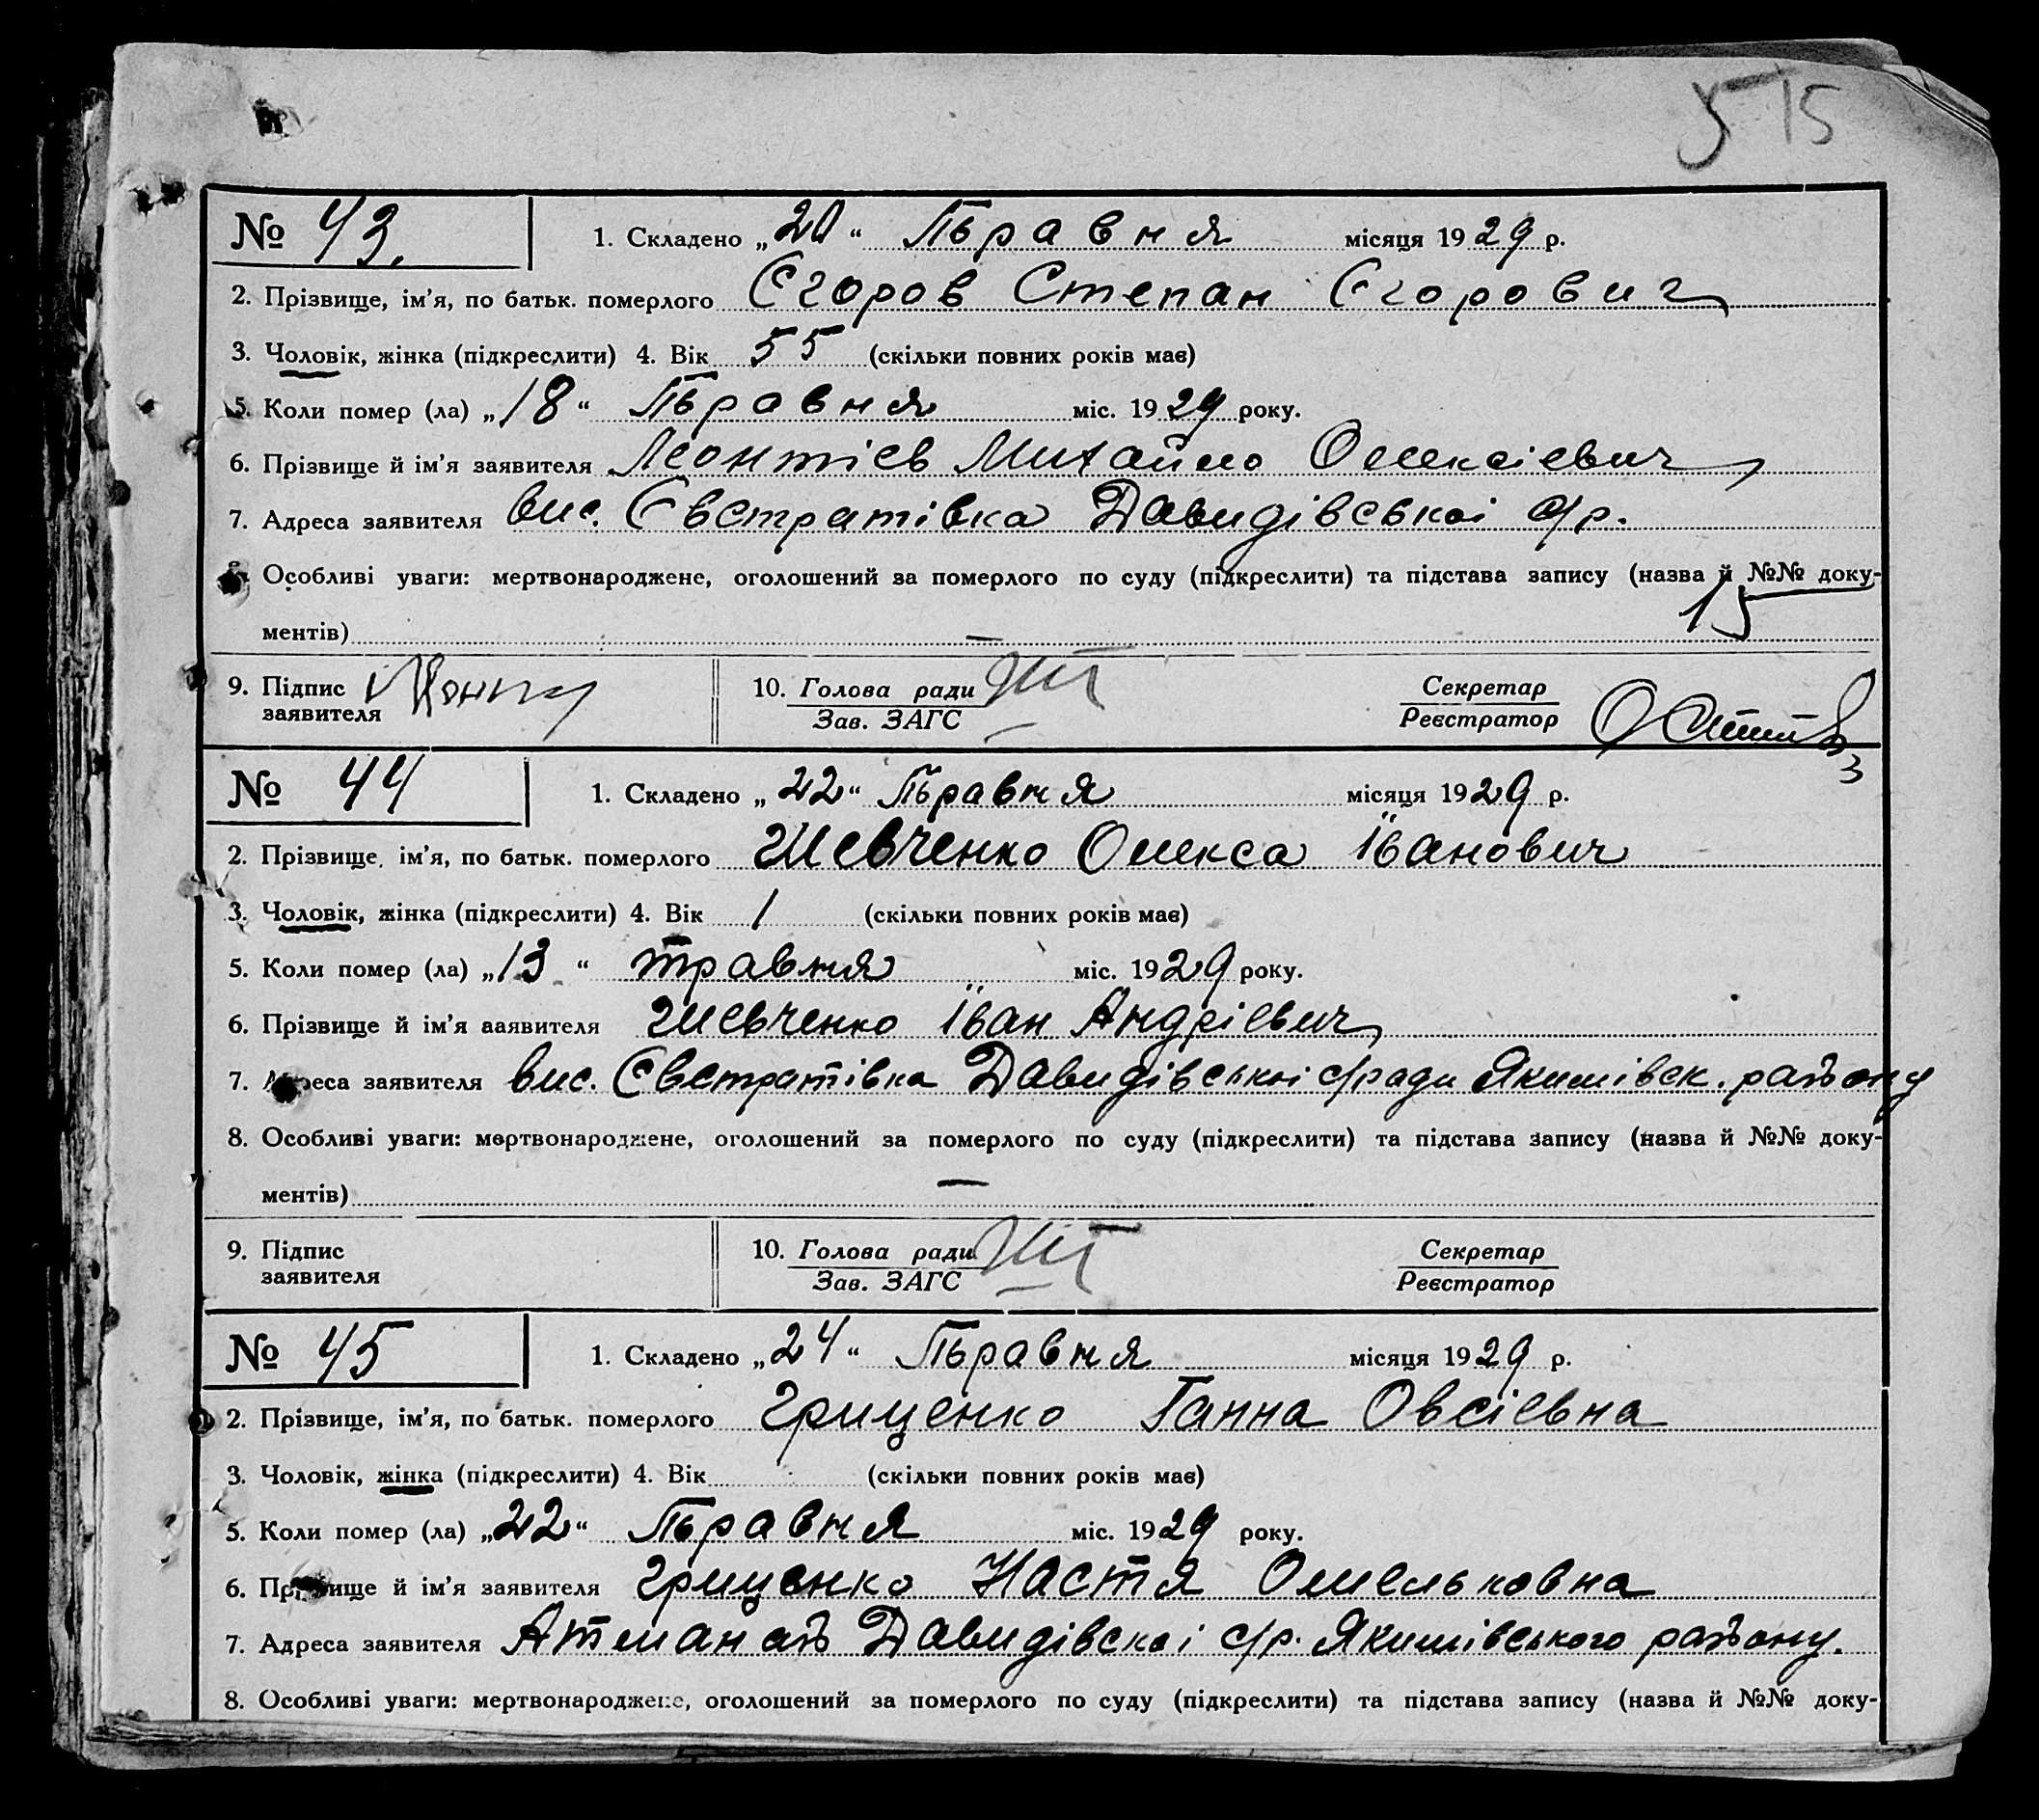 5 15
№ 43. 1. Складено „20“ Травня місяця 1929 р.
2. Прізвище, ім’я, по батьк. померлого Єгоров Степан Єгорович
3. Чоловік, жінка (підкреслити) 4. Вік 55 (скільки повних років має)
5. Коли помер (ла) „18“ Травня міс. 1929 року.
6. Прізвище й ім’я заявителя Леонтієв Михайло Олексієвич
7. Адреса заявителя вис. Євстратівка Давидівської с/р.
Особливі уваги: мертвонароджене, оголошений за померлого по суду (підкреслити) та підстава запису (назва й №№ доку-
ментів) — 15
9. Підпис 10. Голова ради Секретар
заявителя Зав. ЗАГС Реєстратор
№ 44 1. Складено „22“ Травня місяця 1929 р.
2. Прізвище, ім’я, по батьк. померлого Шевченко Олекса Іванович
3. Чоловік, жінка (підкреслити) 4. Вік 1 (скільки повних років має)
5. Коли помер (ла) „13“ травня міс. 1929 року.
6. Прізвище й ім’я заявителя Шевченко Іван Андрієвич
7. Адреса заявителя вис. Євстратівка Давидівської с/ради Якимівск. району
8. Особливі уваги: мертвонароджене, оголошений за померлого по суду (підкреслити) та підстава запису (назва й №№ доку-
ментів) —
9. Підпис 10. Голова ради Секретар
заявителя Зав. ЗАГС Реєстратор
№ 45 1. Складено „24“ Травня місяця 1929 р.
2. Прізвище, ім’я, по батьк. померлого Грищенко Ганна Овсієвна
3. Чоловік, жінка (підкреслити) 4. Вік (скільки повних років має)
5. Коли помер (ла) „22“ Травня міс. 1929 року.
6. Прізвище й ім’я заявителя Грищенко Настя Омельковна
7. Адреса заявителя Атманай Давидівскої с/р. Якимівського району.
8. Особливі уваги: мертвонароджене, оголошений за померлого по суду (підкреслити) та підстава запису (назва й №№ доку-